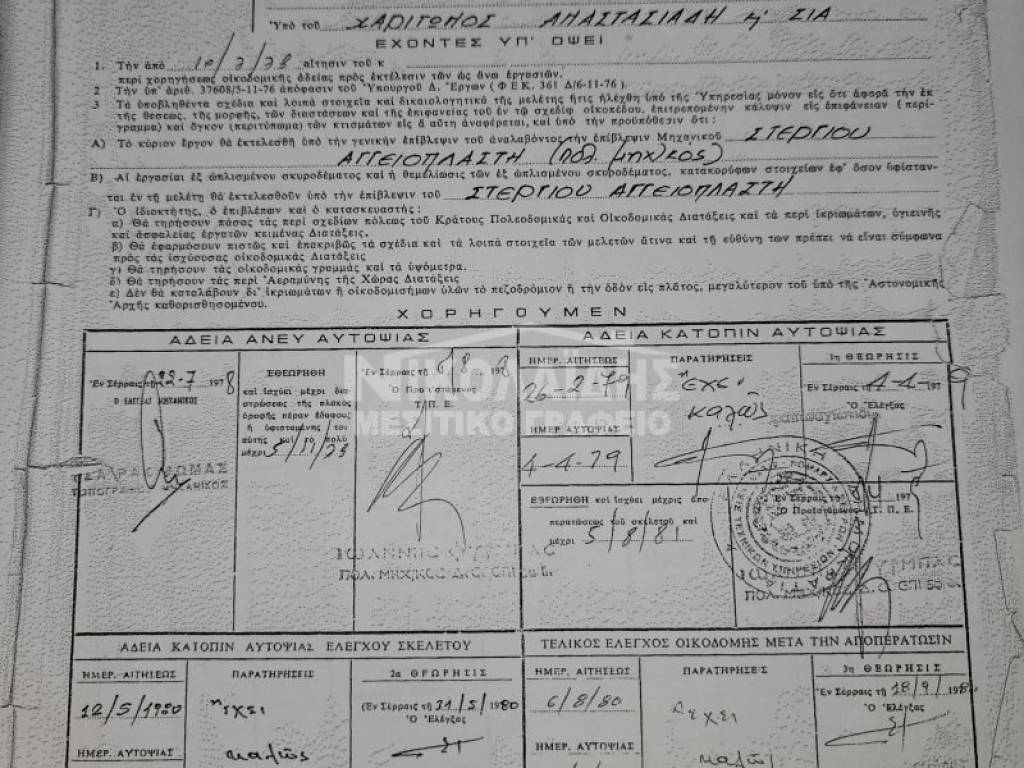 Ὑπό τοῦ ΧΑΡΙΤΩΝΟΣ ΑΝΑΣΤΑΣΙΑΔΗ & ΣΙΑ
ΕΧΟΝΤΕΣ ΥΠ' ΟΨΕΙ
1. Τήν ἀπό 10/2/78 αἴτησιν τοῦ κ
περί χορηγήσεως οἰκοδομικῆς ἀδείας πρός ἐκτέλεσιν τῶν ὡς ἄνω ἐργασιῶν.
2 Τήν ὑπ' ἀριθ. 37608/5-11-76 ἀπόφασιν τοῦ Ὑπουργοῦ Δ. Ἔργων (Φ Ε Κ. 361 Δ/6-11-76 ).
3 Τά ὑποβληθέντα σχέδια καί λοιπά στοιχεῖα καί δικαιολογητικά τῆς μελέτης ἥτις ἠλέχθη ὑπό τῆς Ὑπηρεσίας μόνον εἰς ὅτι ἀφορᾶ τήν ἐκ
τῆς θέσεως, τῆς μορφῆς, τῶν διαστάσεων καί τῆς ἐπιφανείας τοῦ ἐν τῷ σχεδίῳ οἰκοπέδου, ἐπιτρεπομένην κάλυψιν εἰς ἐπιφάνειαν (περί-
γραμμα) καί ὄγκον (περιτύπωμα) τῶν κτισμάτων εἰς ἅ αὕτη ἀναφέρεται, καί ὑπό τήν προϋπόθεσιν ὅτι :
Α) Τό κύριον ἔργον θά ἐκτελεσθῆ ὑπό τήν γενικήν ἐπίβλεψιν τοῦ ἀναλαβόντος τήν ἐπίβλεψιν Μηχανικοῦ ΣΤΕΡΓΙΟΥ
ΑΓΓΕΙΟΠΛΑΣΤΗ (πολ μηχ/κός)
Β) Αἱ ἐργασίαι ἐξ ὡπλισμένου σκυροδέματος καί ἡ θεμελίωσις τῶν ἐξ ὡπλισμένου σκυροδέματος, κατακορύφων στοιχείων ἐφ' ὅσον ὑφίσταν-
ται ἐν τῇ μελέτῃ θά ἐκτελεσθοῦν ὑπό τήν ἐπίβλεψιν τοῦ ΣΤΕΡΓΙΟΥ ΑΓΓΕΙΟΠΛΑΣΤΗ
Γ) Ὁ ἰδιοκτήτης, ὁ ἐπιβλέπων καί ὁ κατασκευαστής :
α) Θά τηρήσουν πάσας τάς περί σχεδίων πόλεως τοῦ Κράτους Πολεοδομικάς καί Οἰκοδομικάς Διατάξεις καί τά περί ἰκριωμάτων, ὑγιεινῆς
καί ἀσφαλείας ἐργατῶν κειμένας Διατάξεις.
β) Θά ἐφαρμόσουν πιστῶς καί ἐπακριβῶς τά σχέδια καί τά λοιπά στοιχεῖα τῶν μελετῶν ἅτινα καί τῇ εὐθύνῃ των πρέπει νά εἶναι σύμφωνα
πρός τάς ἰσχύουσας οἰκοδομικάς Διατάξεις
γ) Θά τηρήσουν τάς οἰκοδομικάς γραμμάς καί τά ὑψόμετρα.
δ) Θά τηρήσουν τάς περί Ἀεραμύνης τῆς Χώρας Διατάξεις
ε) Δέν θά καταλάβουν δι' ἰκριωμάτων ἤ οἰκοδομισήμων ὑλῶν τό πεζοδρόμιον ἤ τήν ὁδόν εἰς πλάτος, μεγαλύτερον τοῦ ὑπό τῆς Ἀστυνομικῆς
Ἀρχῆς καθορισθησομένου.
ΧΟΡΗΓΟΥΜΕΝ
ΑΔΕΙΑ ΑΝΕΥ ΑΥΤΟΨΙΑΣ
Ἐν Σέρραις τῇ 28-7 1978
Ο ΕΛΕΓΞΑΣ ΜΗΧΑΝΙΚΟΣ
ΤΟΠΟΓΡΑΦΟΣ ΜΗΧΑΝΙΚΟΣ
ΕΘΕΩΡΗΘΗ
καί ἰσχύει μέχρι δια-
στρώσεως τῆς πλακός
ὀροφῆς πέραν ἐδάφους
ἤ ὑφισταμένης τοι
αύτης καί τό πολύ
μέχρι 5/11/78
Ἐν Σέρραις τῇ 5/8 1978
Ὁ Προϊστάμενος
Τ. Π. Ε.
ΠΟΛ. ΜΗΧ/ΚΟΣ
ΝΙΚΟΛΑΪΔΗΣ
ΜΕΣΙΤΙΚΟ ΓΡΑΦΕΙΟ
ΑΔΕΙΑ ΚΑΤΟΠΙΝ ΑΥΤΟΨΙΑΣ
ΗΜΕΡ. ΑΙΤΗΣΕΩΣ
26-2-79
ΗΜΕΡ. ΑΥΤΟΨΙΑΣ
4-4-79
ΠΑΡΑΤΗΡΗΣΕΙΣ
Ἔχει
καλῶς
1η ΘΕΩΡΗΣΙΣ
Ἐν Σέρραις τῇ 4-4-1979
Ὁ Ἐλέγξας
ΕΘΕΩΡΗΘΗ καί ἰσχύει μέχρις ἀπο-
περατώσεως τοῦ σκελετοῦ καί
μέχρι 5/8/81
Ἐν Σέρραις τῇ 197
Ὁ Προϊστάμενος Τ. Π. Ε.
ΠΟΛ. ΜΗΧ/ΚΟΣ
ΑΔΕΙΑ ΚΑΤΟΠΙΝ ΑΥΤΟΨΙΑΣ ΕΛΕΓΧΟΥ ΣΚΕΛΕΤΟΥ
ΗΜΕΡ. ΑΙΤΗΣΕΩΣ
12/5/1980
ΗΜΕΡ. ΑΥΤΟΨΙΑΣ
ΠΑΡΑΤΗΡΗΣΕΙΣ
Ἔχει
καλῶς
2α ΘΕΩΡΗΣΙΣ
(Ἐν Σέρραις τῇ 21/5/1980
Ὁ Ἐλέγξας
ΤΕΛΙΚΟΣ ΕΛΕΓΧΟΣ ΟΙΚΟΔΟΜΗΣ ΜΕΤΑ ΤΗΝ ΑΠΟΠΕΡΑΤΩΣΙΝ
ΗΜΕΡ. ΑΙΤΗΣΕΩΣ
6/8/80
ΗΜΕΡ. ΑΥΤΟΨΙΑΣ
ΠΑΡΑΤΗΡΗΣΕΙΣ
Ἔχει
καλῶς
3η ΘΕΩΡΗΣΙΣ
Ἐν Σέρραις τῇ 18/9/1980
Ὁ Ἐλέγξας